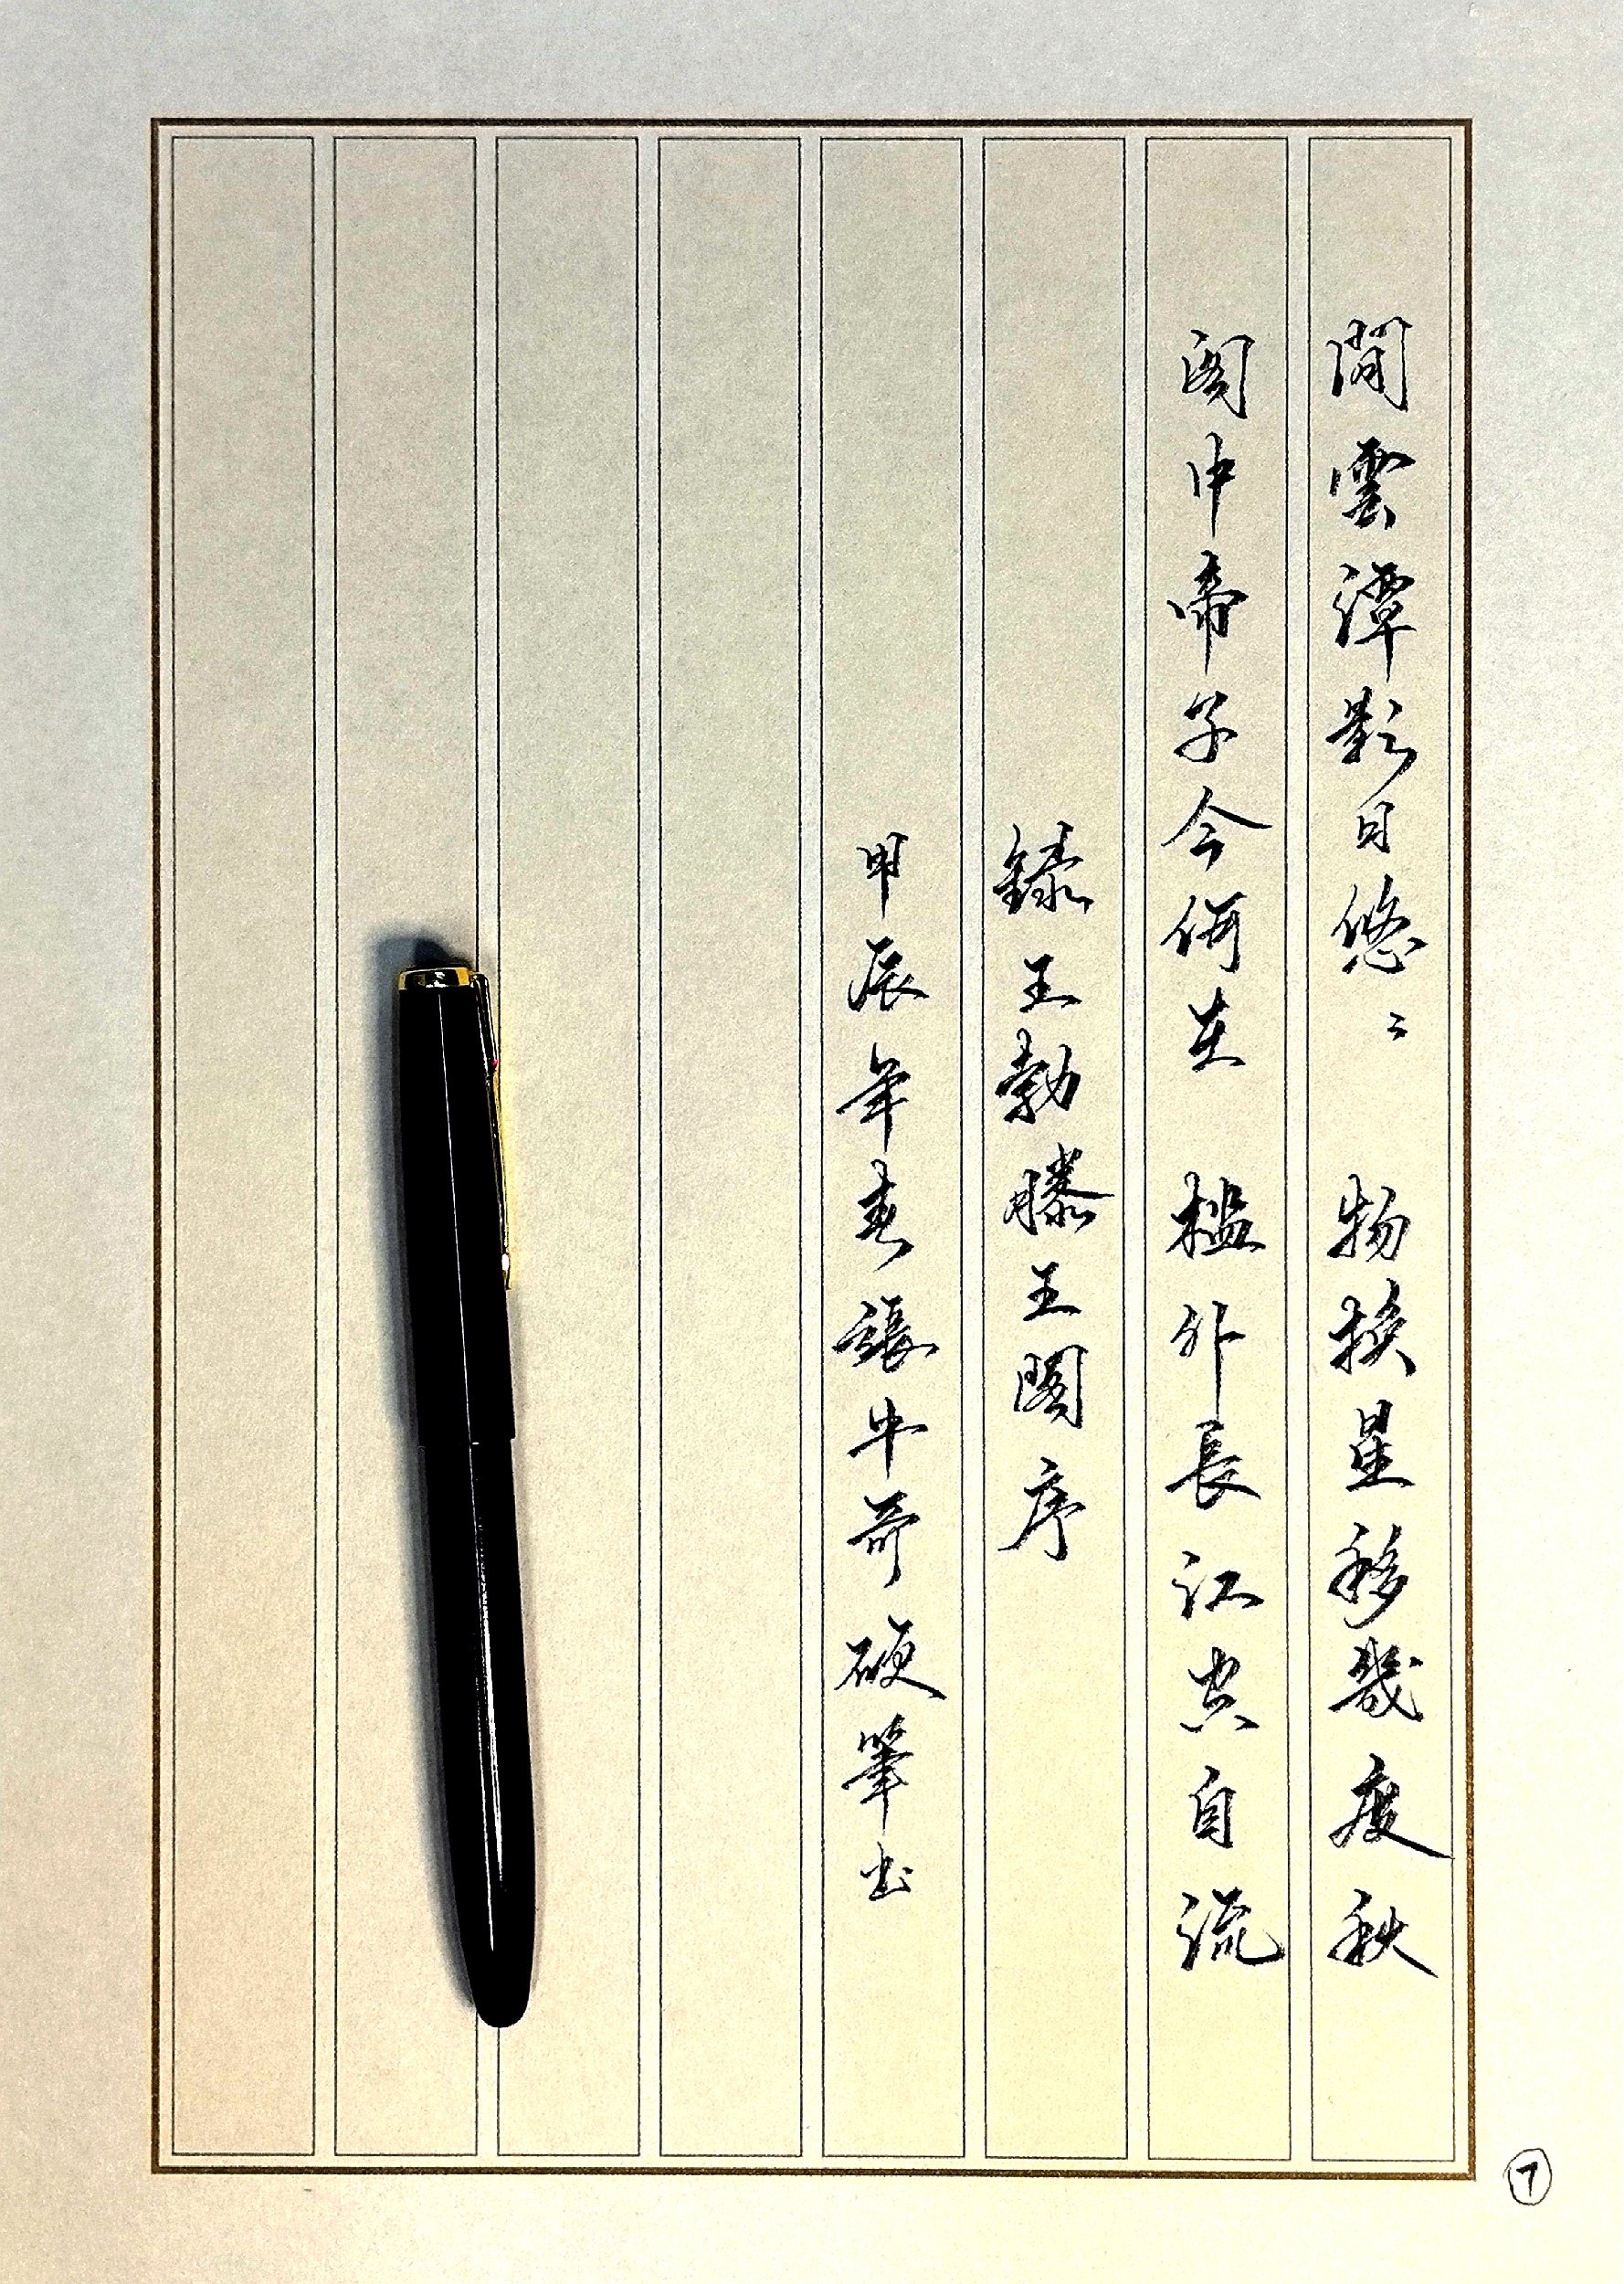 閒雲潭影日悠〻 物換星移幾度秋
閣中帝子今何在 檻外長江空自流
錄王勃滕王閣序
甲辰年春張牛哥硬筆書
7